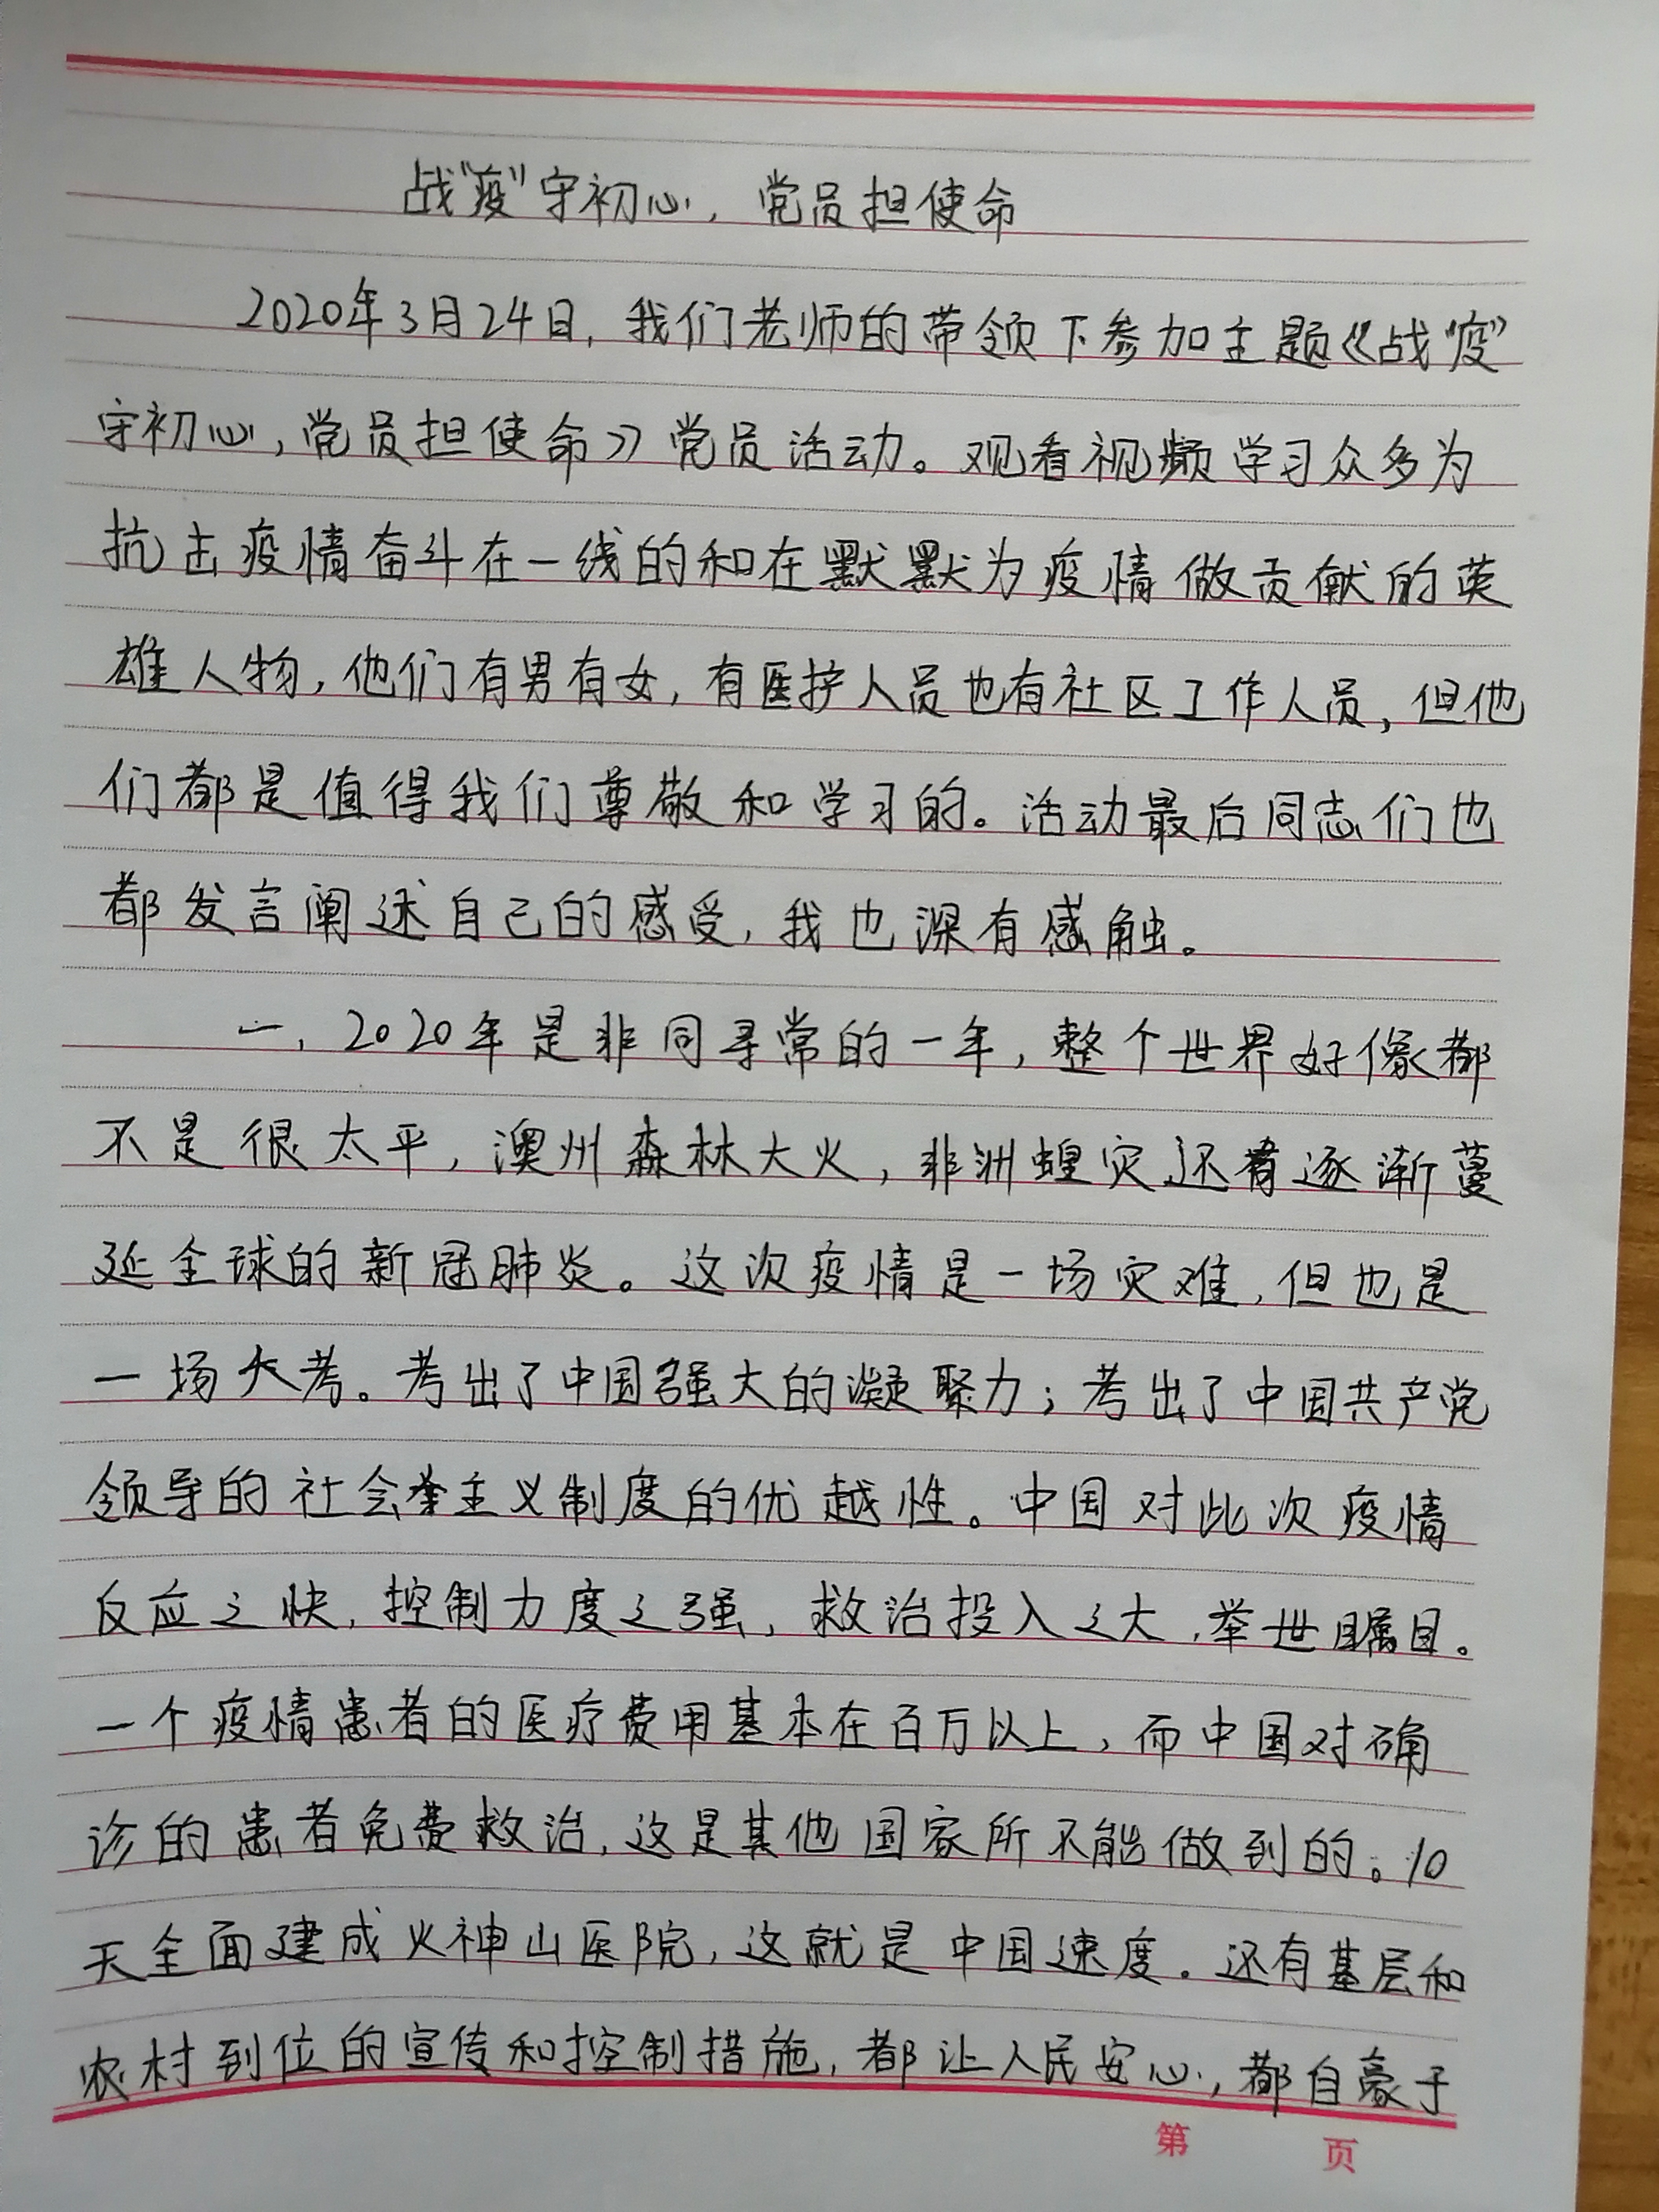 战"疫"守初心，党员担使命
2020年3月24日，我们老师的带领下参加主题《战"疫"
守初心，党员担使命》党员活动。观看视频学习众多为
抗击疫情奋斗在一线的和在默默为疫情做贡献的英
雄人物，他们有男有女，有医护人员也有社区工作人员，但他
们都是值得我们尊敬和学习的。活动最后同志们也
都发言阐述自己的感受，我也深有感触。
一，2020年是非同寻常的一年，整个世界好像都
不是很太平，澳州森林大火，非洲蝗灾还有逐渐蔓
延全球的新冠肺炎。这次疫情是一场灾难，但也是
一场大考。考出了中国强大的凝聚力；考出了中国共产党
领导的社会主义制度的优越性。中国对此次疫情
反应之快，控制力度之强，救治投入之大，举世瞩目。
一个疫情患者的医疗费用基本在百万以上，而中国对确
诊的患者免费救治，这是其他国家所不能做到的。10
天全面建成火神山医院，这就是中国速度。还有基层和
农村到位的宣传和控制措施，都让人民安心，都自豪于
第 页